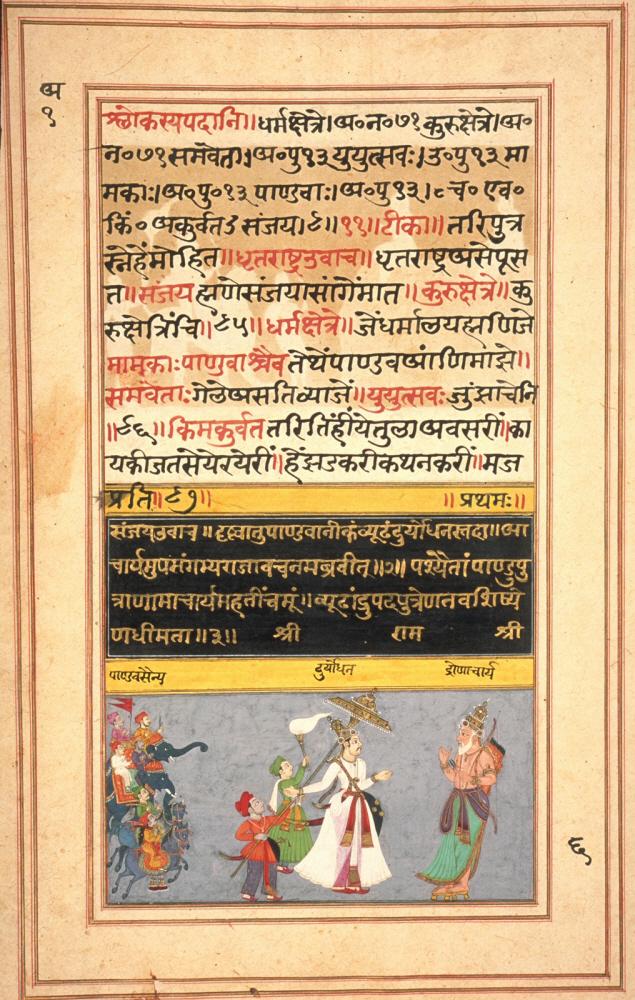 अ
१
श्लोकस्यपदानि॥धर्मक्षेत्रे।अ॰न॰७१कुरुक्षेत्रे।अ॰
न॰७१समवेता।अ॰पु१३युयुत्सवः।उ॰पु१३मा
मकाः।अ॰पु॰१३पाण्डवाः।अ॰पु१३।८च॰एव॰
किं॰अकुर्वत३संजय।९॥११॥टीका॥तरिपुत्र
स्नेहेंमोहित॥धृतराष्ट्रउवाच॥धृतराष्ट्रअसेपूस
त॥संजयह्मणेसंजयासांगेंमात॥कुरुक्षेत्रे॥कु
रुक्षेत्रिंचि॥९५॥धर्मक्षेत्रे॥जेंधर्मालयह्मणिजे
मामकाःपाण्डवाश्चैवतेथेंपाण्डवआंणिमाझे॥
समवेताःगेलेअसतिव्याजें॥युयुत्सवःजुंझाचेनि
॥९६॥किमकुर्वततरितिंहींयेतुलाअवसरीं॥का
यकीजतसेयेरयेरीं॥हेंझडकरीकथनकरीं॥मज
प्रति॥९७॥ ॥प्रथमः॥
संजयउवाच॥दृष्ट्वातुपाण्डवानीकंव्यूढंदुर्योधनस्तदा॥आ
चार्यमुपसंगम्यराजावचनमब्रवीत्॥२॥पश्यैतांपाण्डुपु
त्राणामाचार्यमहतींचमूं॥व्यूढांद्रुपदपुत्रेणतवशिष्ये
णधीमता॥३॥ श्री राम श्री
पाण्डवसैन्य दुर्योधन द्रोणाचार्य
६